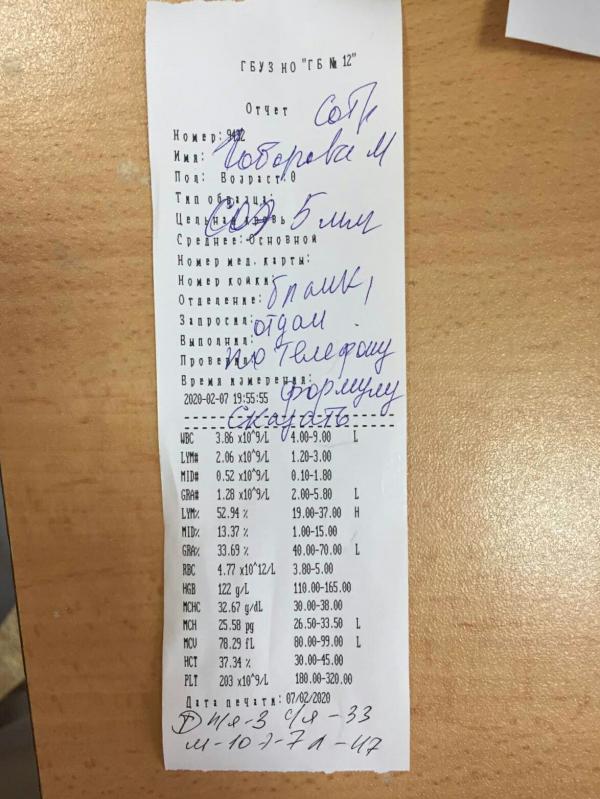 ГБУЗ НО "ГБ № 12"
Отчет
Номер: 9432
Имя:
Пол: Возраст:0
Тип образца:
СОЭ 5 мм
Цельная кровь
Среднее: Основной
Номер мед. карты:
Номер койки:
Отделение: бланк,
Запросил: отдам
Выполнил:
Проверил: по телефону
Время измерения: формулу
2020-02-07 19:55:55
сказать
WBC 3.86 x10^9/L 4.00-9.00 L
LYM# 2.06 x10^9/L 1.20-3.00
MID# 0.52 x10^9/L 0.10-1.80
GRA# 1.28 x10^9/L 2.00-5.80 L
LYM% 52.94 % 19.00-37.00 H
MID% 13.37 % 1.00-15.00
GRA% 33.69 % 40.00-70.00 L
RBC 4.77 x10^12/L 3.80-5.00
HGB 122 g/L 110.00-165.00
MCHC 32.67 g/dL 30.00-38.00
MCH 25.58 pg 26.50-33.50 L
MCV 78.29 fL 80.00-99.00 L
HCT 37.34 % 30.00-45.00
PLT 203 x10^9/L 180.00-320.00
Дата печати: 07/02/2020
п/я-3 с/я-33
м-10 э-7 л-47